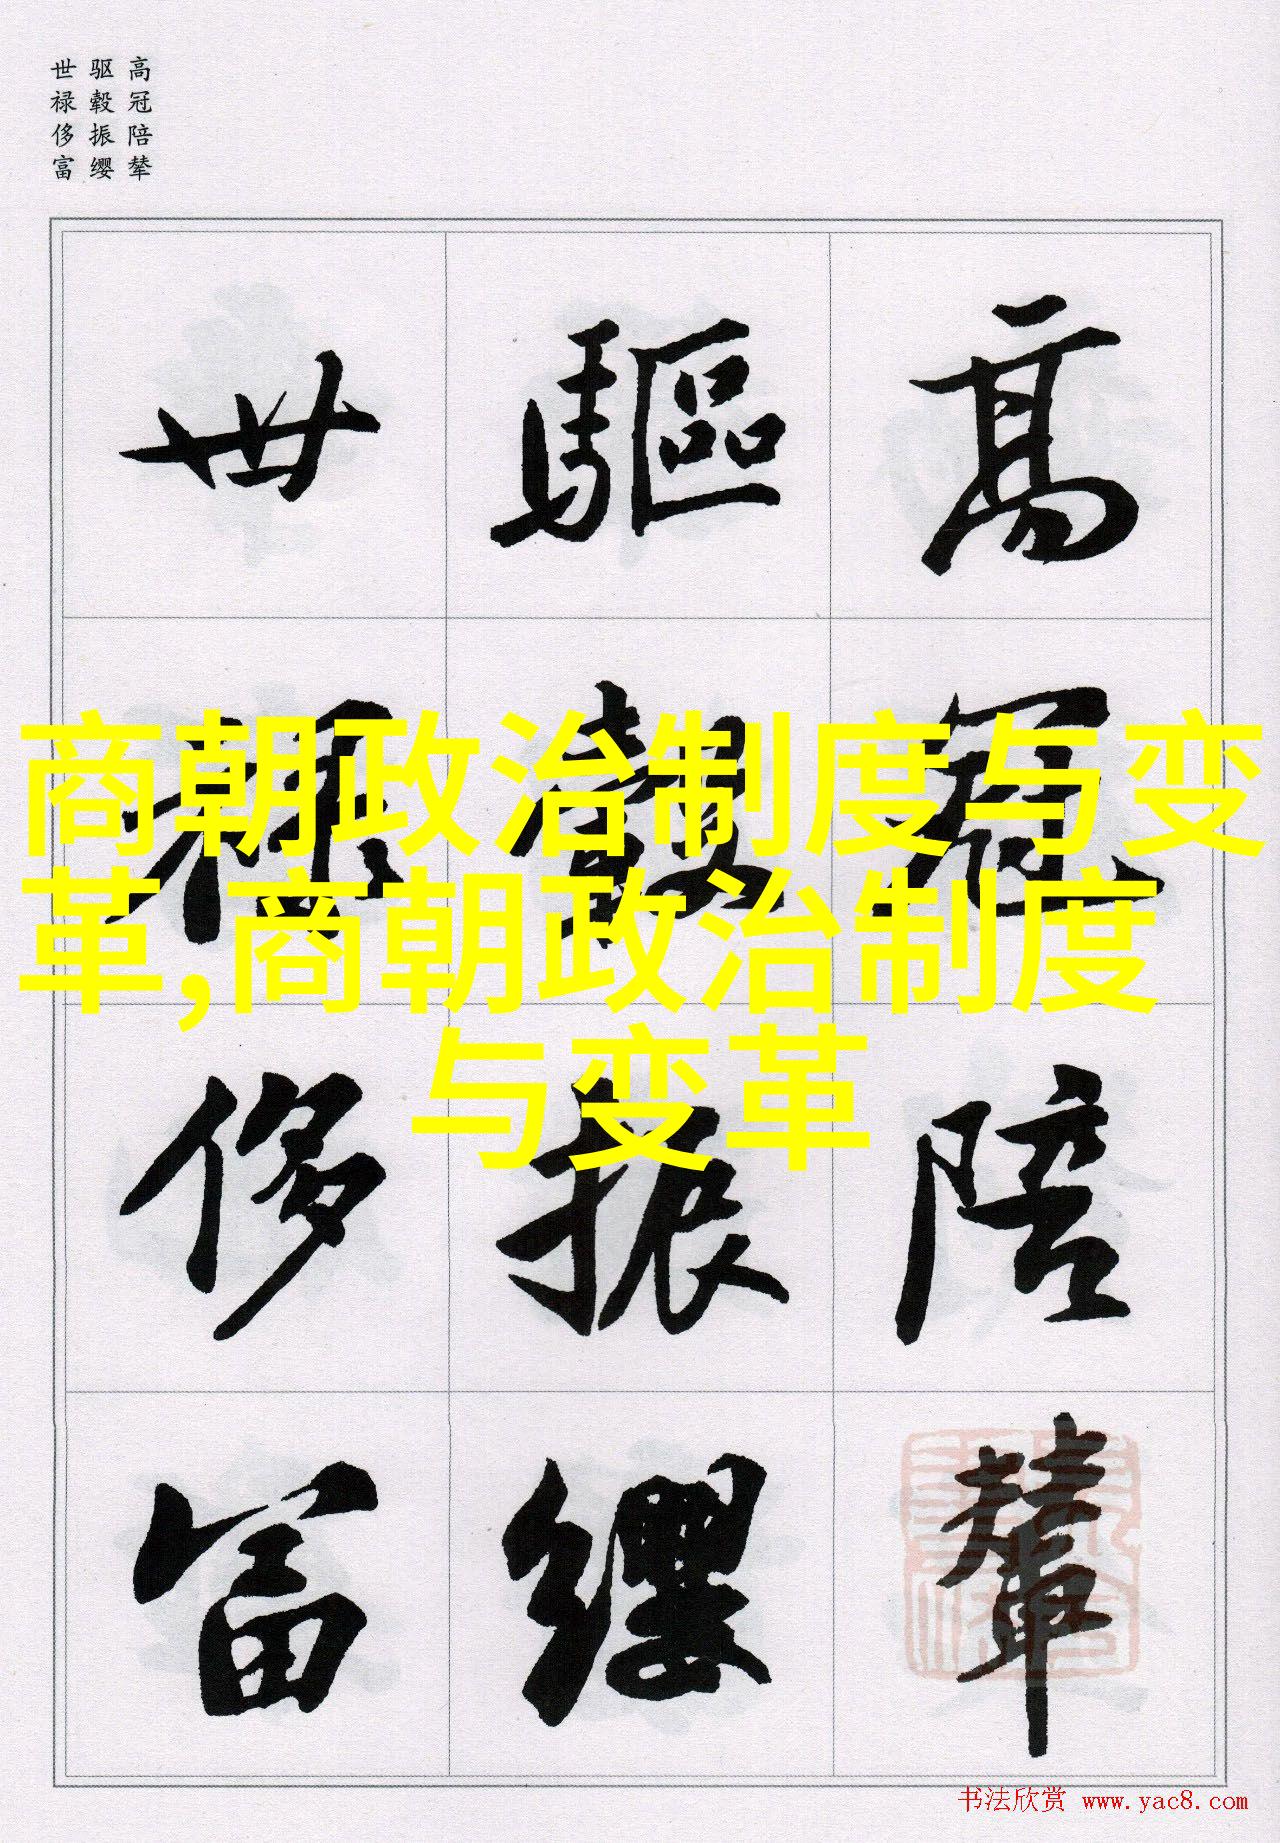 高冠陪辇
驱毂振缨
世禄侈富
高冠陪輦
驅轂振纓
世禄侈富
商朝政治制度与变
革,商朝政治制度
与变革
书法欣赏 www.yac8.com